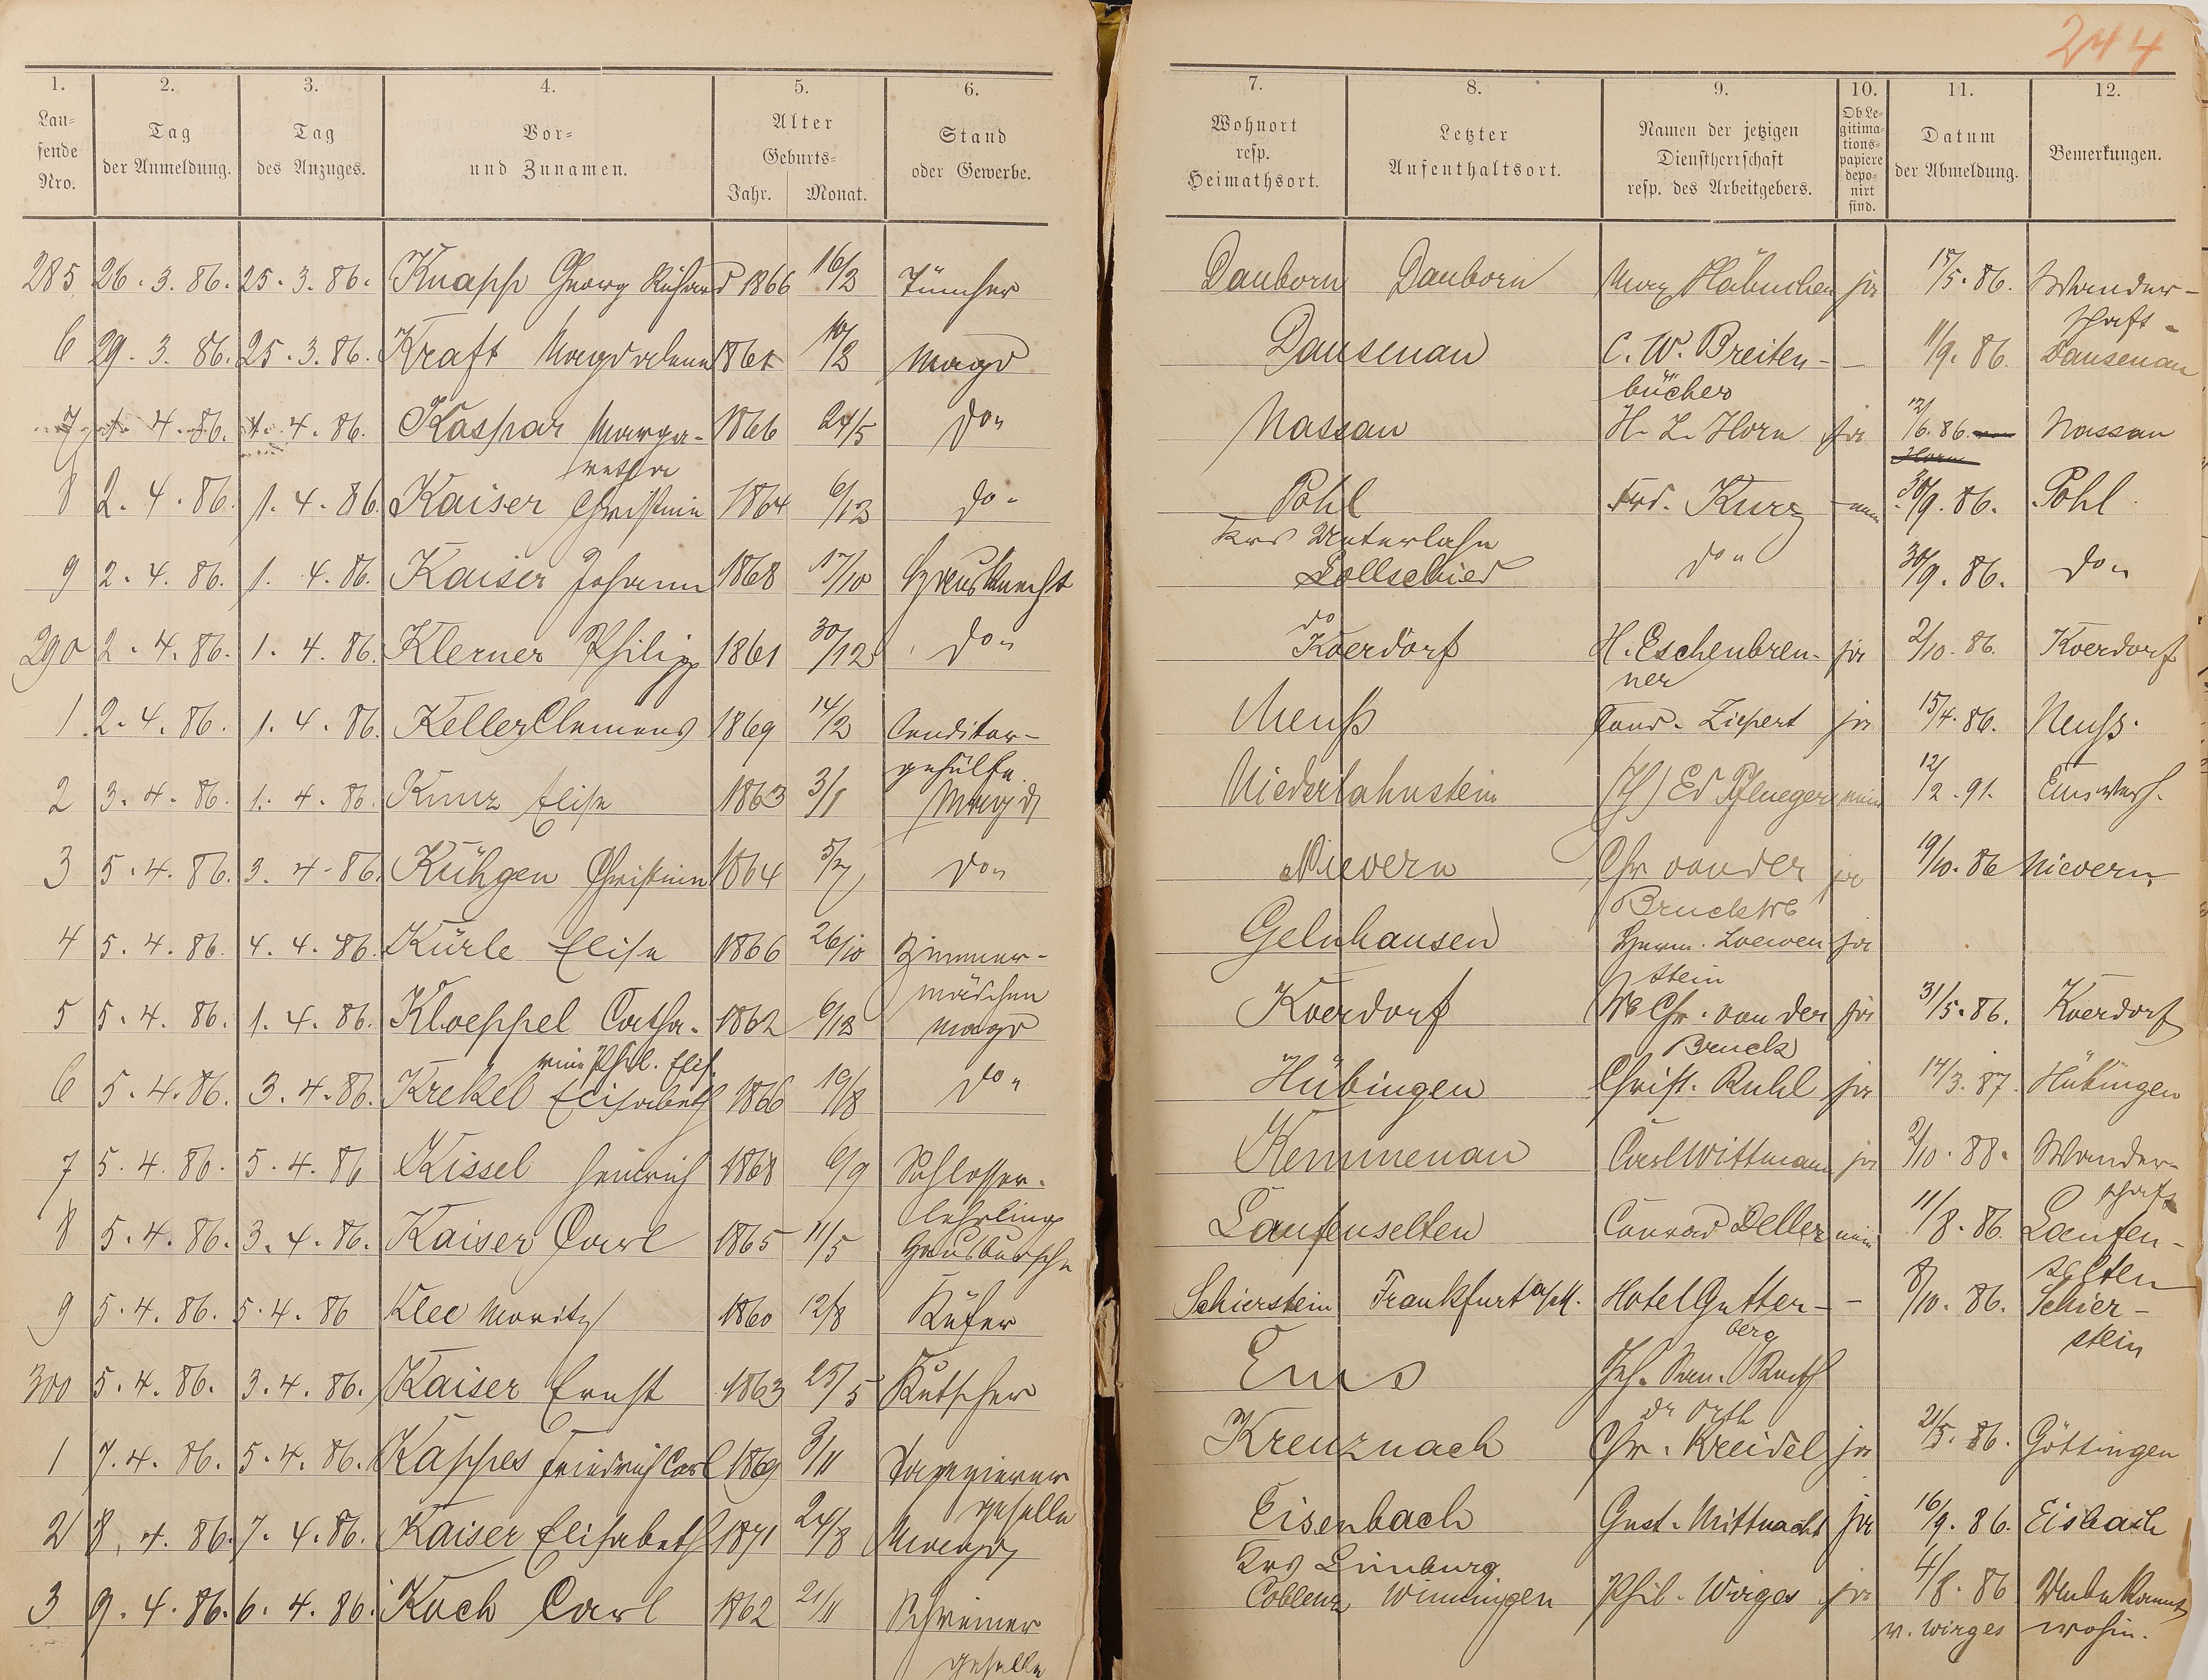 244
1. 2. 3. 4. 5. 6. 7. 8. 9. 10. 11. 12.
Lau-
fende
Nro.
Tag
der Anmeldung.
Tag
des Anzuges.
Vor-
und Zunamen.
Alter
Geburts-
Jahr. Monat.
Stand
oder Gewerbe.
Wohnort
resp.
Heimathsort.
Letzter
Aufenthaltsort.
Namen der jetzigen
Dienstherrschaft
resp. des Arbeitgebers.
Ob Le-
gitima-
tions-
papiere
depo-
nirt
sind.
Datum
der Abmeldung.
Bemerkungen.
285 26. 3. 86. 25. 3. 86. Knapp Georg Richard 1866 16/3 Tüncher Dauborn Dauborn Häbuchen ja 17/5. 86. Wander-
schaft
6 29. 3. 86. 25. 3. 86. Kraft Magdalena Magd Dausenau C. W. Breiten- — 11/9. 86. Dausenau
bücher
7 1. 4. 86. 1. 4. 86. Kaspar Marga- 1866 24/5 do Nassau H. L. Horn ja 12/6. 86. Nassau
rethe
8 2. 4. 86. 1. 4. 86. Kaiser Christine 1864 6/12 do Pohl Frd. Kurz nein 30/9. 86. Pohl
Krs Unterlahn
9 2. 4. 86. 1. 4. 86. Kaiser Johann 1868 17/10 Hausknecht Lollschied do 30/9. 86. do
do
290 2. 4. 86. 1. 4. 86. Klerner Philipp 1861 30/12 do Koerdorf H. Eschenbren- ja 2/10. 86. Koerdorf
ner
1 2. 4. 86. 1. 4. 86. Keller Clemens 1869 14/2 Conditor- Neuß Ferd. Ziepert ja 15/4. 86. Neuß.
gehülfe
2 3. 4. 86. 1. 4. 86. Kunz Elise 1863 3/1 Magd Niederlahnstein Ed Pflueger nein 12/2. 91.
3 5. 4. 86. 3. 4. 86. Kühgen Christine 1864 5/7 do Nievern Chr von der ja 19/10. 86 Nievern
Bruck We
4 5. 4. 86. 4. 4. 86. Kürle Elise 1866 26/10 Zimmer- Gelnhausen Herm. Loewen ja
mädchen stein
5 5. 4. 86. 1. 4. 86. Kloeppel Catha- 1862 6/12 Magd Koerdorf We Chr. von der ja 31/5. 86. Koerdorf
rine Phil. Elis. Bruck
6 5. 4. 86. 3. 4. 86. Krekel Elisabeth 1866 19/8 do Hübingen Christ. Ruhl ja 14/3. 87. Hübingen
7 5. 4. 86. 5. 4. 86 Kissel Heinrich 1868 6/9 Schlosser- Kemmenau Carl Wittmann ja 2/10. 88. Wander-
lehrling schaft
8 5. 4. 86. 3. 4. 86. Kaiser Carl 1865 11/5 Hausbursche Laufenselten Conrad Deller nein 11/8. 86. Laufen-
selten
9 5. 4. 86. 5. 4. 86 Klee Moritz 1860 12/8 Küfer Schierstein Frankfurt a/M. Hotel Gutten- - 8/10. 86. Schier-
berg stein
300 5. 4. 86. 3. 4. 86. Kaiser Ernst 1863 25/5 Kutscher Ems
Dr Orth
1 7. 4. 86. 5. 4. 86. Kappes Friedrich Carl 1869 3/11 Tapezierer Kreuznach Chr. Kreidel ja 21/5. 86. Göttingen
geselle
2 8. 4. 86. 7. 4. 86. Kaiser Elisabeth 1871 24/8 Magd Eisenbach Gust. Mittnacht ja 16/9. 86. Eisbach
Krs Limburg
3 9. 4. 86. 6. 4. 86. Koch Carl 1862 21/11 Schreiner Coblenz Winningen Phil. Wirges ja 4/8. 86 Unbekannt
geselle n. Wirges wohin.